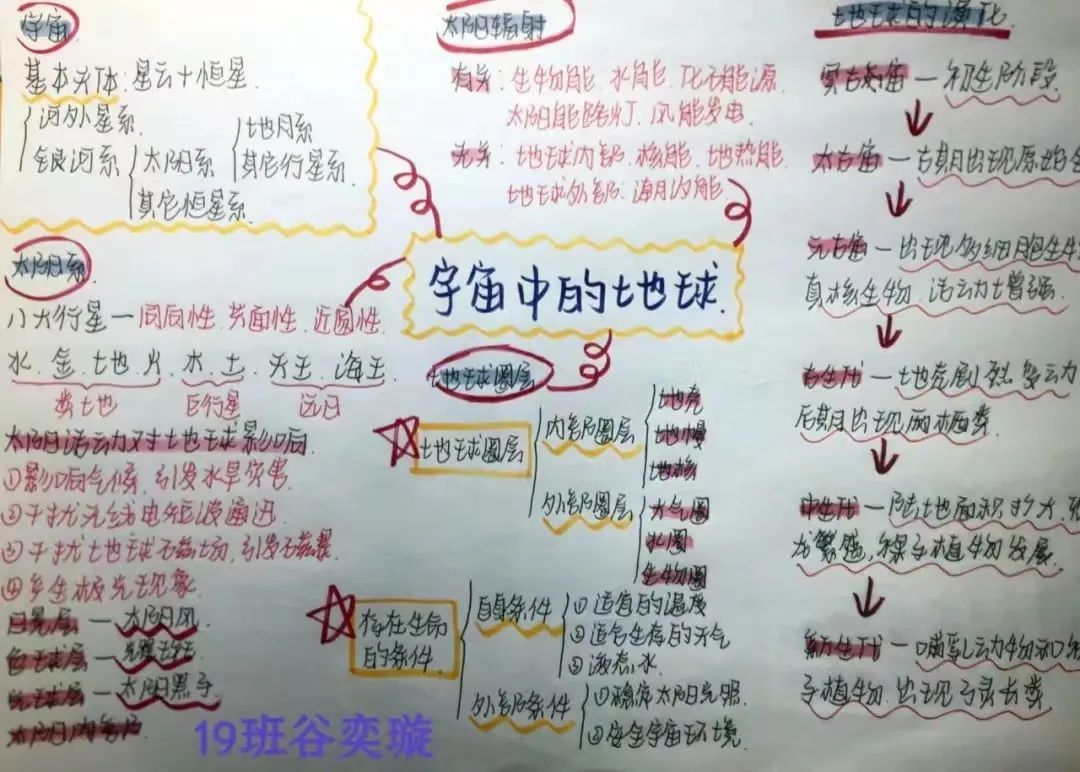 宇宙
基本天体：星云十恒星.
河外星系.
银河系
太阳系
其它恒星系.
地月系
其它行星系.
太阳辐射
有关：生物能. 水能. 化石能源.
太阳能路灯. 风能发电
无关：地球内部，核能. 地热能.
地球外部：潮汐能.
宇宙中的地球.
太阳系
八大行星—同向性. 共面性. 近圆性.
水. 金. 地. 火. 木. 土. 天王. 海王.
类地
巨行星
远日
太阳活动对地球影响.
①影响气候，引发水旱灾害.
②干扰无线电短波通迅.
③干扰地球磁场，引发磁暴.
④产生极光现象.
日冕层—太阳风.
色球层—
光球层—太阳黑子.
太阳内部
地球圈层
地球圈层
内部圈层
地壳
地幔
地核
外部圈层
大气圈
水圈
生物圈
存在生命
的条件.
自身条件
①适宜的温度
②适合生存的大气
③液态水
外部条件
①稳定太阳光照.
②安全宇宙环境.
地球的演化.
冥古宙—初生阶段.
太古宙—后期出现原始
元古宙—出现多细胞生
真核生物. 活动力增强.
古生代—地壳剧烈变动
后期出现两栖类.
中生代—陆地面积扩大.
龙繁盛，裸子植物发展.
新生代—哺乳动物和
子植物. 出现了灵长类
19班谷奕璇